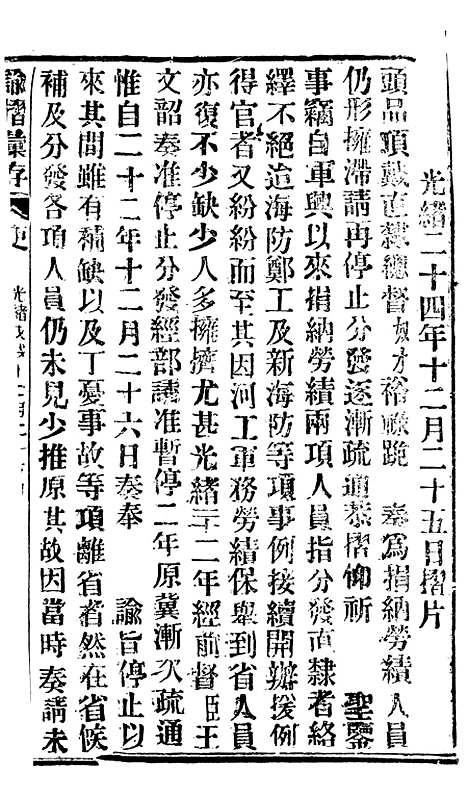 光緒二十四年十二月二十五日摺片
頭品頂戴直隸總督奴才裕祿跪 奏爲捐納勞績人員
仍形擁滯請再停止分發逐漸疏通恭摺仰祈 聖鑒
事竊自軍興以來捐納勞績兩項人員指分發直隸者絡
繹不絕迨海防鄭工及新海防等項事例接續開辦援例
得官者又紛紛而至其因河工軍務勞績保舉到省人員
亦復不少缺少人多擁擠尤甚光緒二十二年經前督臣王
文韶奏准停止分發經部議准暫停二年原冀漸次疏通
惟自二十二年十二月二十六日奏奉 諭旨停止以
來其間雖有補缺以及丁憂事故等項離省者然在省候
補及分發各項人員仍未見少推原其故因當時奏請未
諭摺彙存 吏 光緒戊戌十二月二十